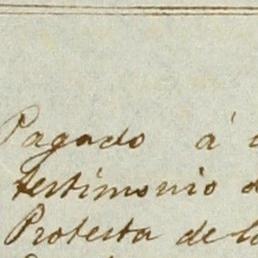 Pagado á
testimonio d
Protesta de la